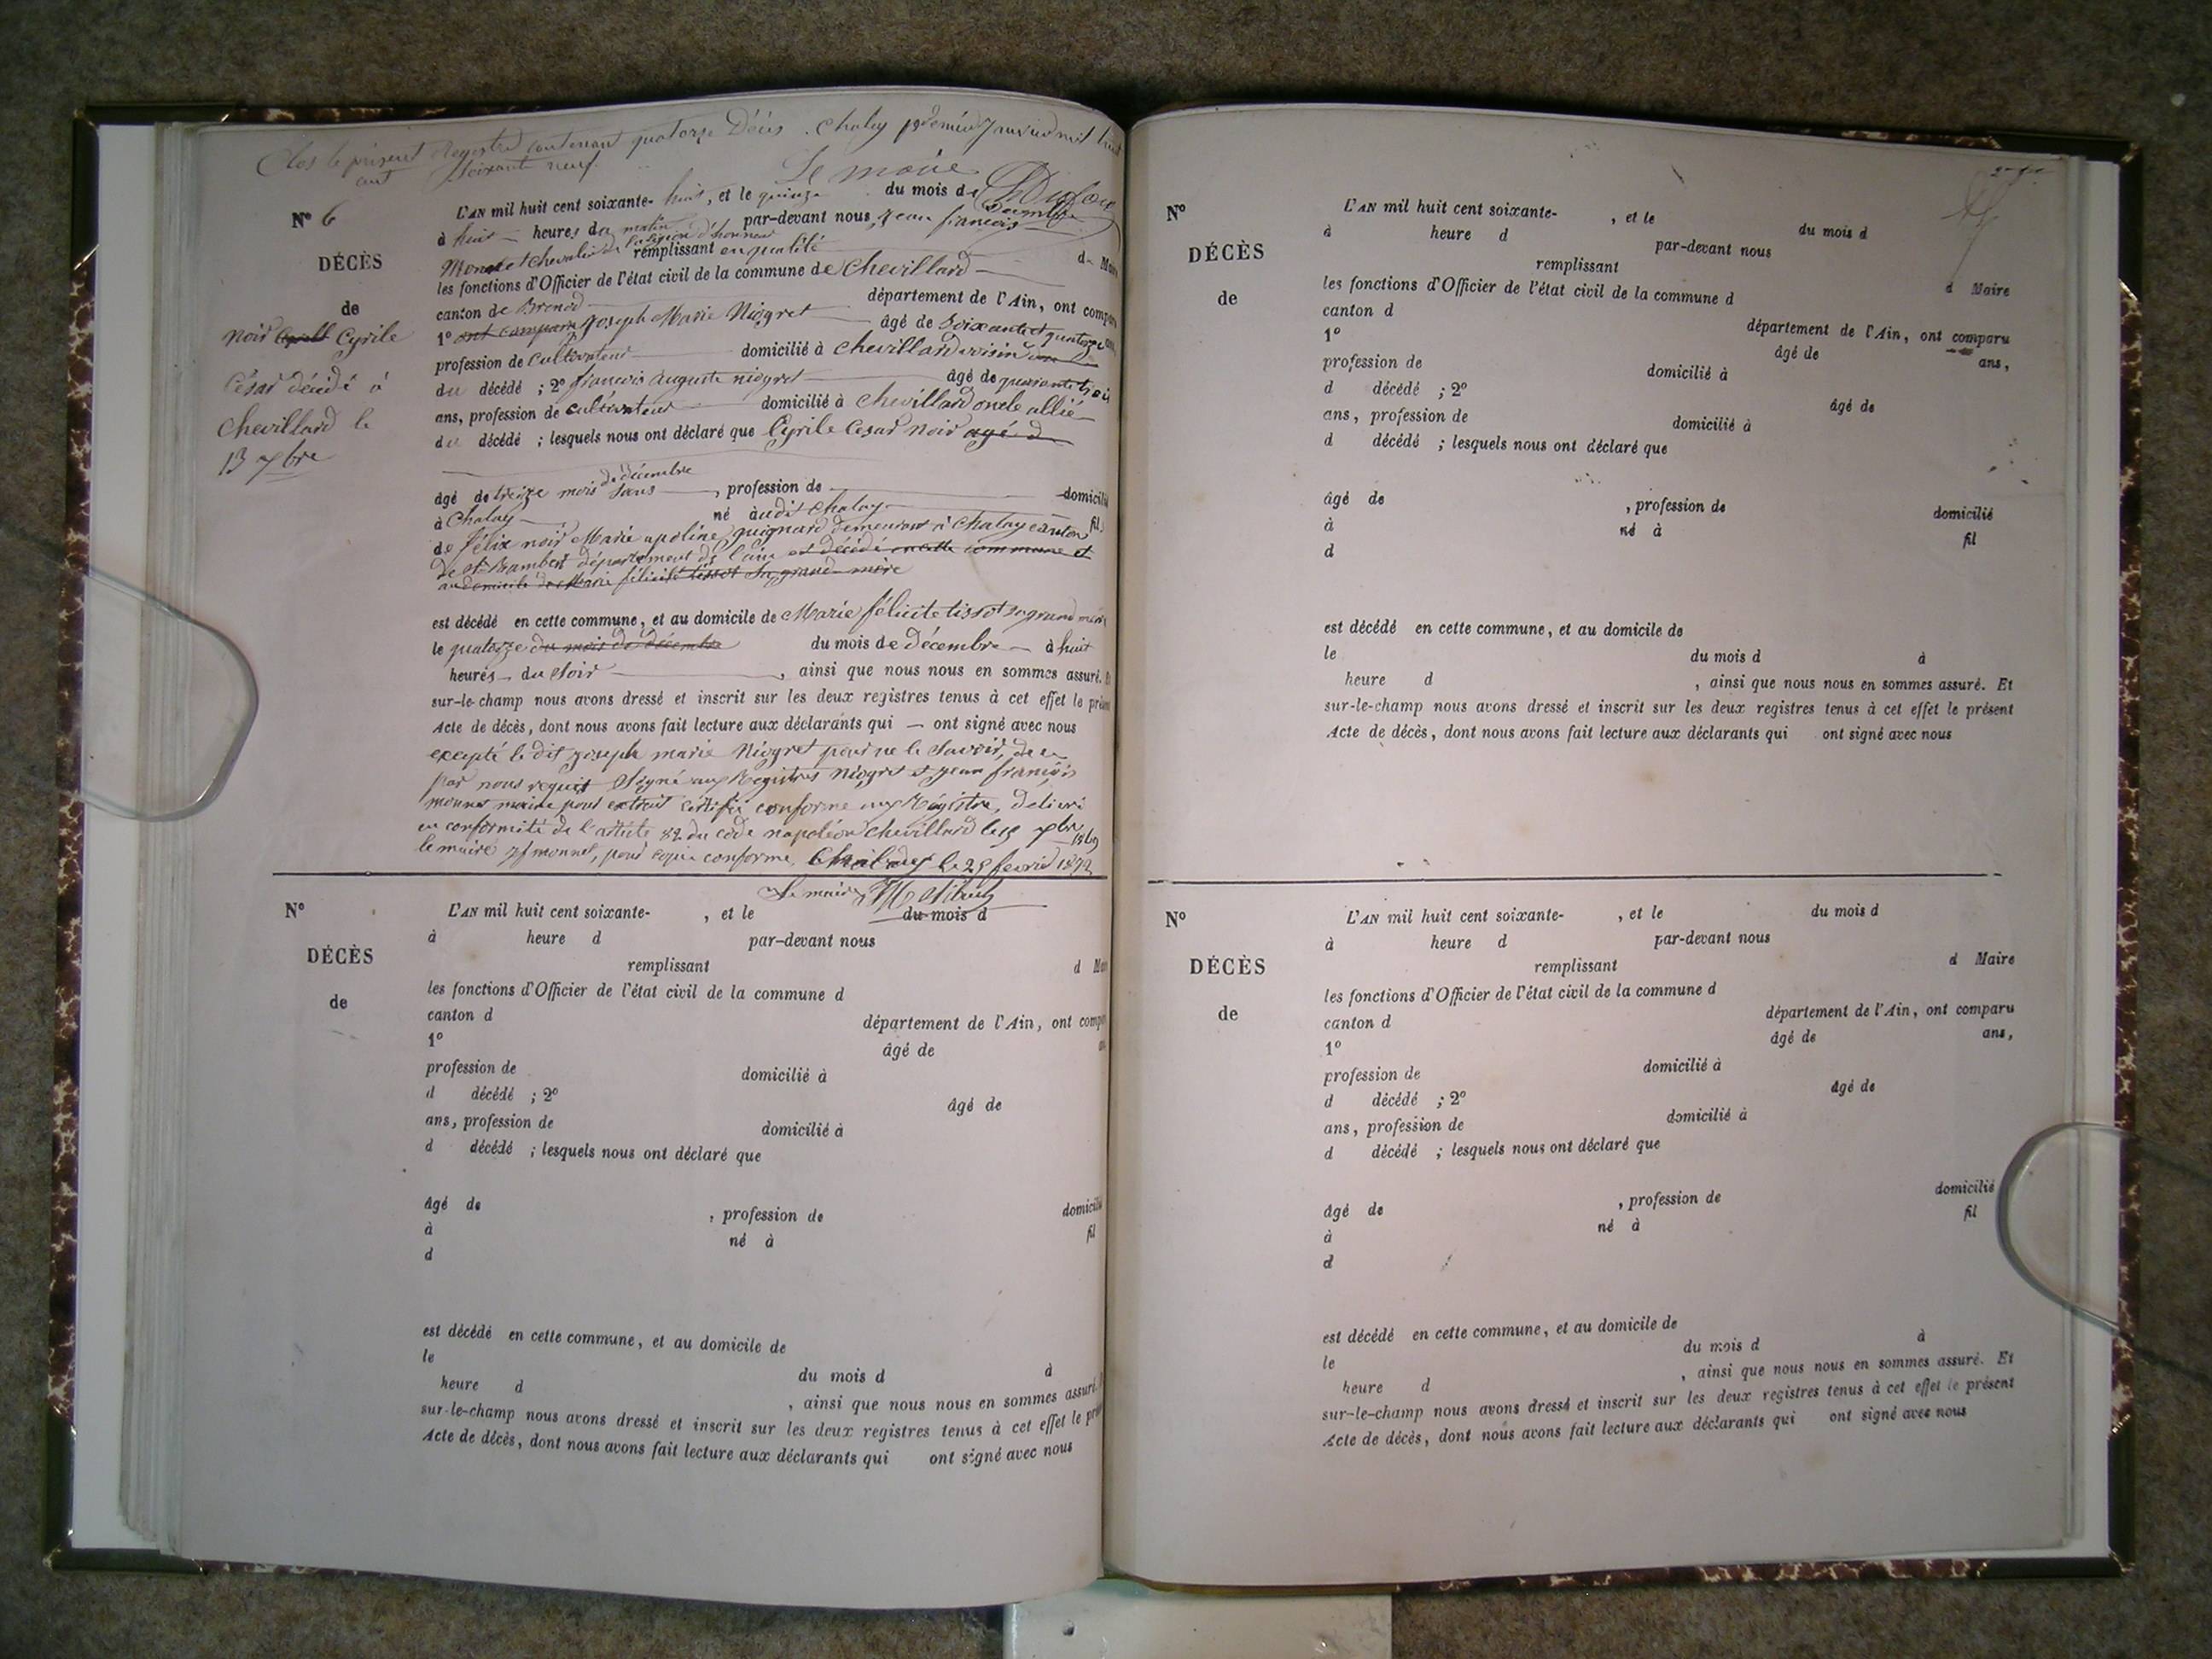 Clos le présent Registre contenant quatorze Décès. Chaley premier janvier mil huit
cent soixante neuf.
Le maire
N° 6
DÉCÈS
de
Noir Cyrile
César décédé à
Chevillard le
13 xbre
L'AN mil huit cent soixante-huit, et le quinze du mois de Décembre
à huit heures du matin par-devant nous, jean françois
Monnet chevalier de la légion d'honneur remplissant en qualité de Maire
les fonctions d'Officier de l'état civil de la commune de Chevillard
canton de Brenod département de l'Ain, ont comparu
1° ont comparu Joseph Marie Niogret âgé de Soixante et quatorze ans,
profession de Cultivateur domicilié à Chevillard voisin
du décédé ; 2° françois auguste niogret âgé de quarante trois
ans, profession de cultivateur domicilié à Chevillard oncle allié
du décédé ; lesquels nous ont déclaré que Cyrile Cesar Noir agé d
âgé de treize mois de décembre sans, profession de domicilié
à Chaley né à audit Chaley fils
de félix noir Marie apoline guignard demeurant à Chaley canton
de St Rambert département de l'ain est décédé en cette commune et
au domicile de Marie félicité tissot sa grand-mère
est décédé en cette commune, et au domicile de Marie félicite tissot sa grand mère
le quatorze du mois de décembre du mois de décembre à huit
heures du Soir, ainsi que nous nous en sommes assuré. Et
sur-le-champ nous avons dressé et inscrit sur les deux registres tenus à cet effet le présent
Acte de décès, dont nous avons fait lecture aux déclarants qui ont signé avec nous
excepté le dit joseph marie Niogret pour ne le Savoir, de ce
par nous requis Signé aux Registres niogret et jean françois
monnet maire pour extrait certifié conforme aux Régistre, delivré
en conformité de l'article 82 du code napoléon Chevillard le 15 xbre 1869
le maire jf monnet, pour copie conforme, Chaley le 25 fevrier 1872
Le maire
N°
DÉCÈS
de
L'AN mil huit cent soixante- , et le du mois d
à heure d par-devant nous
remplissant d Maire
les fonctions d'Officier de l'état civil de la commune d
canton d département de l'Ain, ont comparu
1° âgé de ans,
profession de domicilié à
d décédé ; 2° âgé de
ans, profession de domicilié à
d décédé ; lesquels nous ont déclaré que
âgé de , profession de domicilié
à né à fil
d
est décédé en cette commune, et au domicile de
le du mois d à
heure d , ainsi que nous nous en sommes assuré.
sur-le-champ nous avons dressé et inscrit sur les deux registres tenus à cet effet le présent
Acte de décès, dont nous avons fait lecture aux déclarants qui ont signé avec nous
N°
DÉCÈS
de
L'AN mil huit cent soixante- , et le du mois d
à heure d par-devant nous
remplissant d Maire
les fonctions d'Officier de l'état civil de la commune d
canton d département de l'Ain, ont comparu
1° âgé de ans,
profession de domicilié à
d décédé ; 2° âgé de
ans, profession de domicilié à
d décédé ; lesquels nous ont déclaré que
âgé de , profession de domicilié
à né à fil
d
est décédé en cette commune, et au domicile de
le du mois d à
heure d , ainsi que nous nous en sommes assuré. Et
sur-le-champ nous avons dressé et inscrit sur les deux registres tenus à cet effet le présent
Acte de décès, dont nous avons fait lecture aux déclarants qui ont signé avec nous
N°
DÉCÈS
de
L'AN mil huit cent soixante- , et le du mois d
à heure d par-devant nous
remplissant d Maire
les fonctions d'Officier de l'état civil de la commune d
canton d département de l'Ain, ont comparu
1° âgé de ans,
profession de domicilié à
d décédé ; 2° âgé de
ans, profession de domicilié à
d décédé ; lesquels nous ont déclaré que
âgé de , profession de domicilié
à né à fil
d
est décédé en cette commune, et au domicile de
le du mois d à
heure d , ainsi que nous nous en sommes assuré. Et
sur-le-champ nous avons dressé et inscrit sur les deux registres tenus à cet effet le présent
Acte de décès, dont nous avons fait lecture aux déclarants qui ont signé avec nous